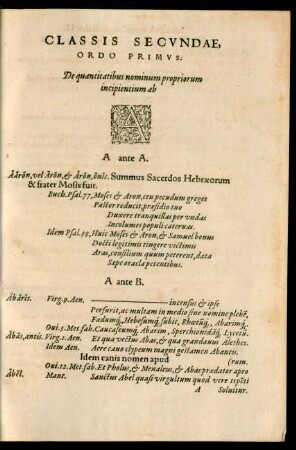 CLASSIS SECVNDAE,
ORDO PRIMVS.
De quantitatibus nominum propriorum
incipientium ab
A
A ante A.
Aărōn, vel Arōn, & Ărŏn, ōnis. Summus Sacerdos Hebræorum
& frater Mosis fuit.
Buch. Psal. 77, Moses & Aron, ceu pecudum greges
Pastor reducit, præsidio tuo
Duxere tranquillas per vndas
Incolumes populi cateruas.
Idem Psal. 99, Huic Moses & Aron, & Samuel bonus
Docti legitimis tingere victimis
Aras, consilium quum peterent, data
Sæpe oracla petentibus.
A ante B.
Ăbărĭs. Virg. 9. Aen. incensus & ipse
Perfurit, ac multam in medio sine nomine plebē,
Fadumq́, Hebesumq́, subit, Rhœtūq́, Abarimq́.
Oui. 5. Met. fab. Caucaseumq́, Abarim, Sperchionidāq́, Lycetū.
Ăbās, antis. Virg. 1. Aen. Et qua vectus Abas, & qua grandæuus Alethes.
Idem Aen. Aere cauo clypeum magni gestamen Abantis.
Idem canis nomen apud (rum.
Oui. 12. Met. fab. Et Pholus, & Menaleus, & Abas prædator apro
Ăbēl. Mant. Sanctus Abel quasi virgultum quod vere
A Soluitur.